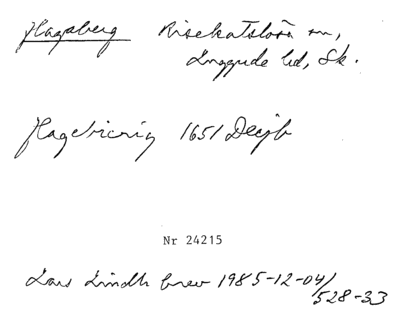 Hagaberg Risekatslösa sn,
Luggude hd, Sk.
Hagebierig 1651 Decjb
Nr 24215
Lars Lindh brev 1985-12-04/
528-33